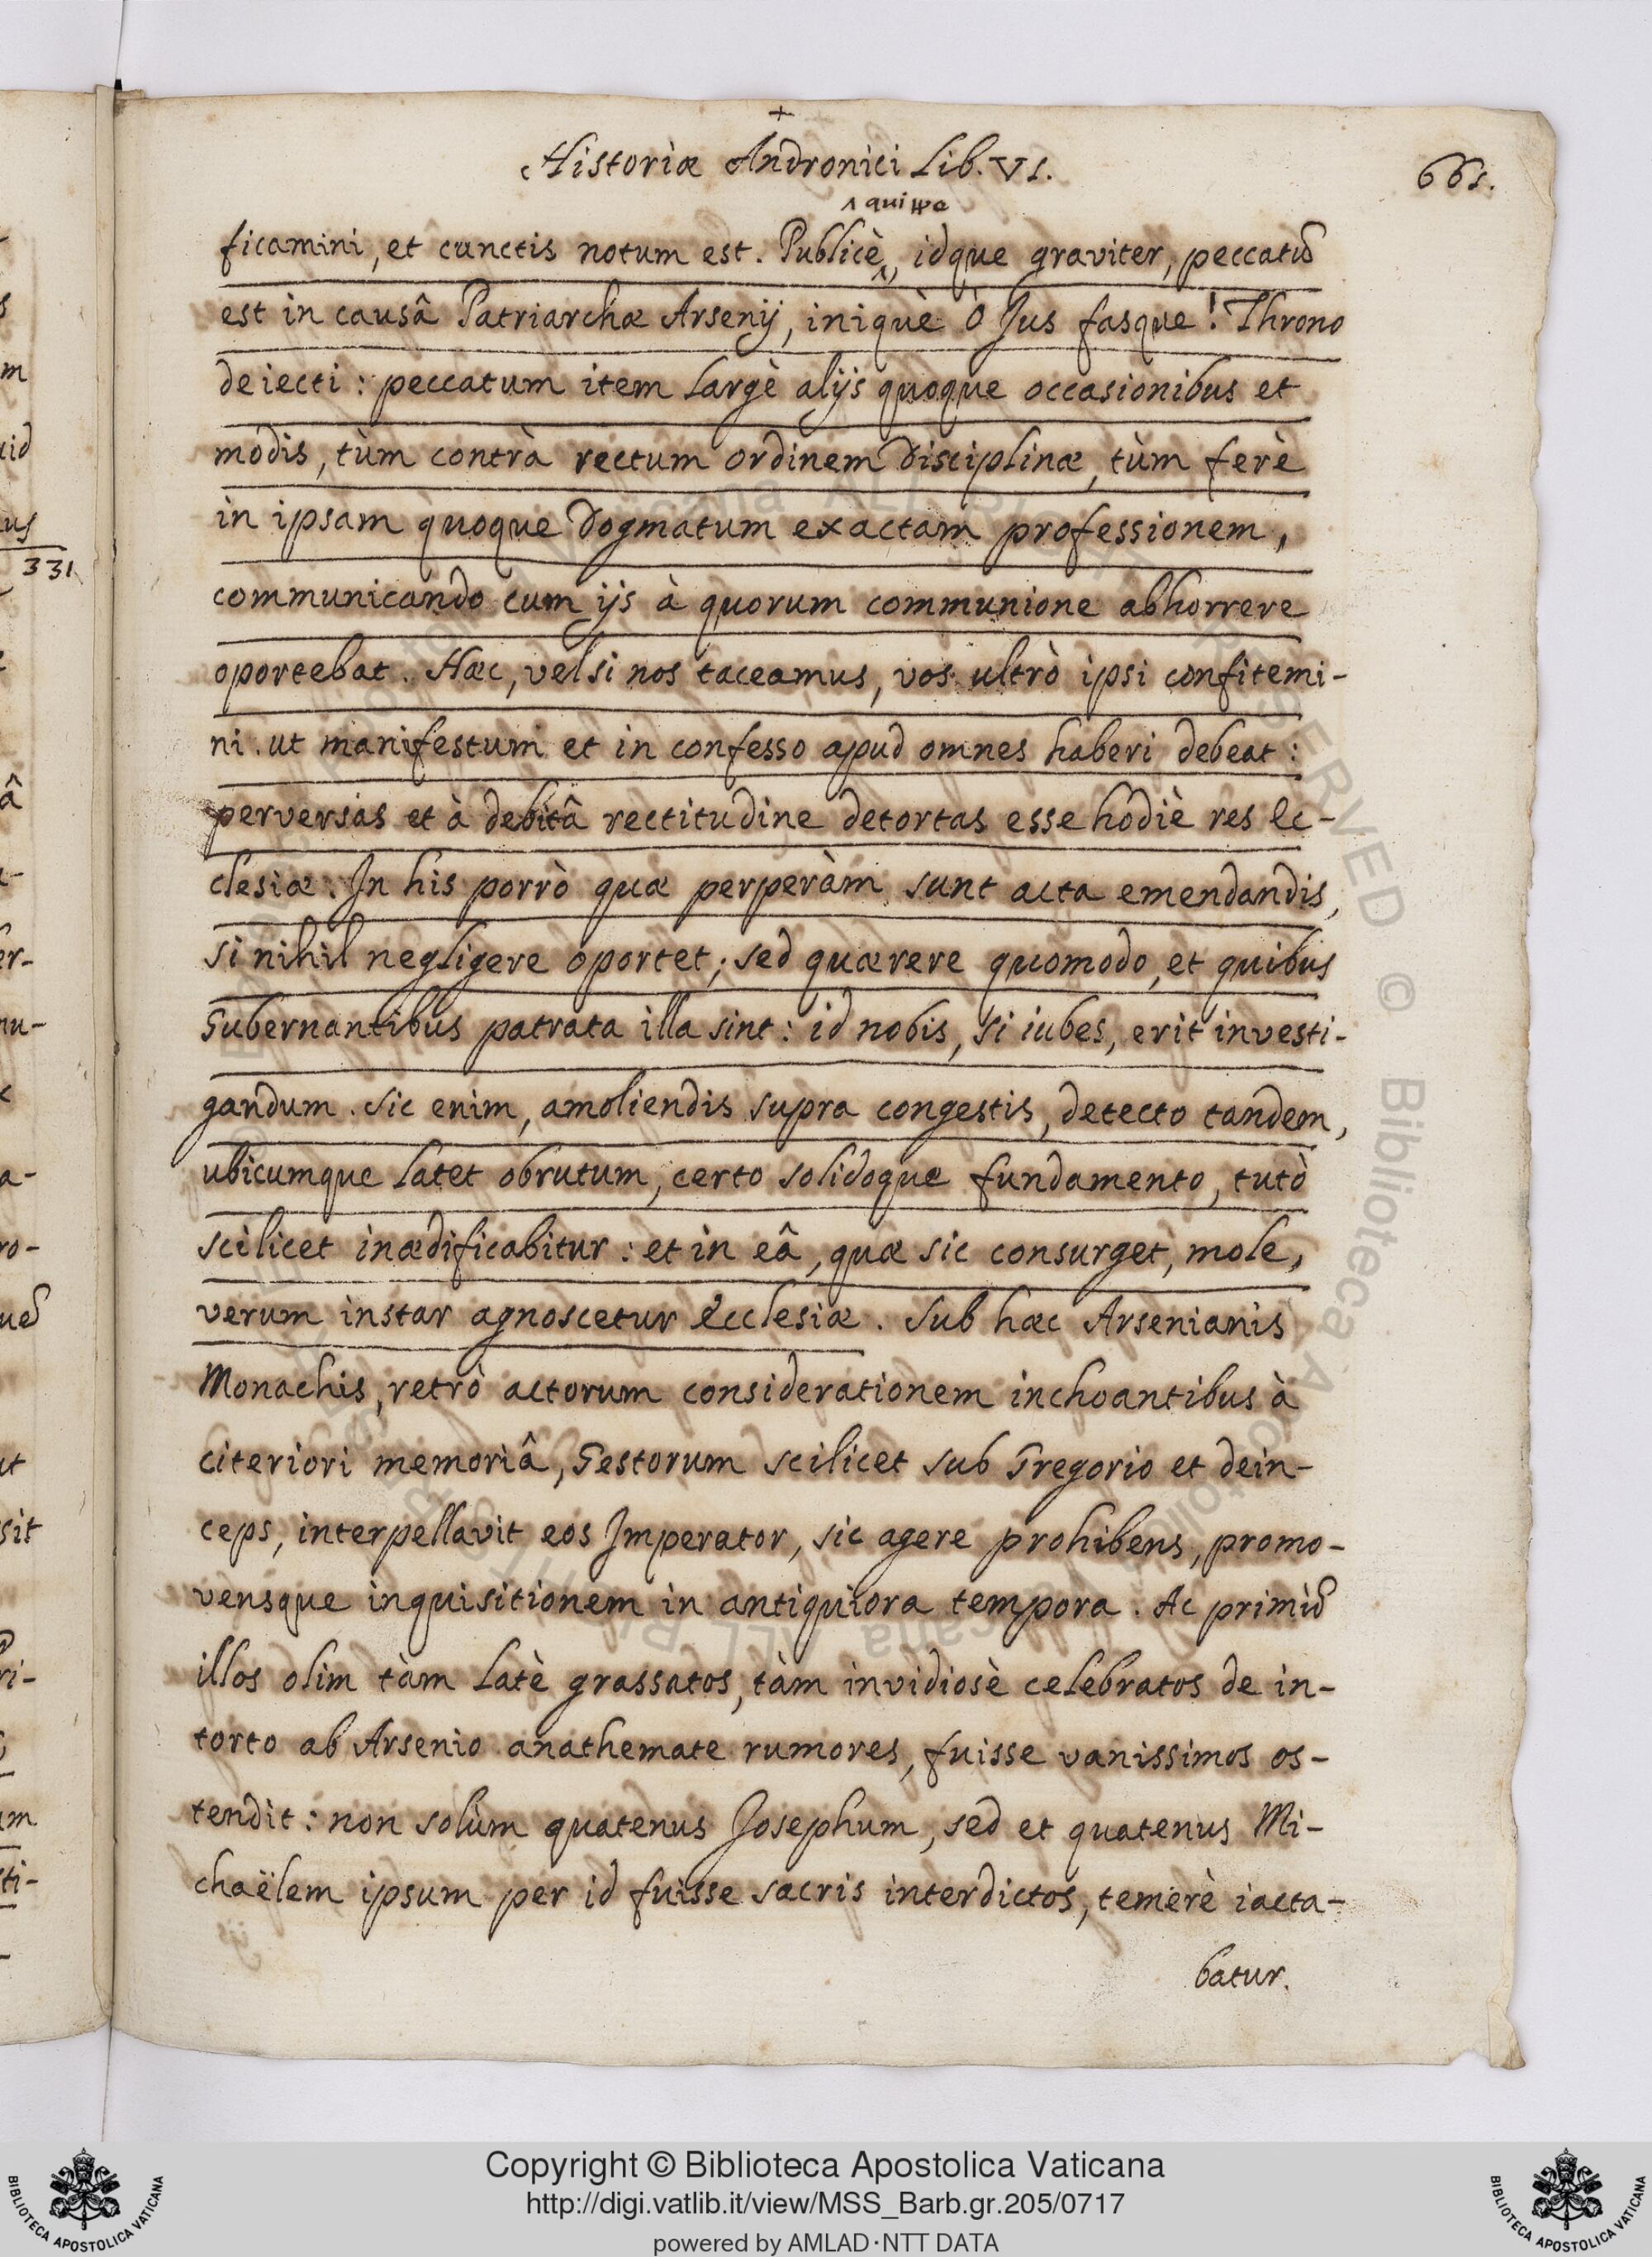 +
Historiæ Andronici Lib. VI.
661.
^ quippe
ficamini, et cunctis notum est. Publicè^, idque graviter, peccatũ
est in causâ Patriarchæ Arsenij, iniquè Ò Jus fasque! Throno
deiecti: peccatum item largè alijs quoque occasionibus et
modis, tùm contrà rectum ordinem Disciplinæ, tùm ferè
in ipsam quoque Dogmatum exactam professionem,
communicando cum ijs à quorum communione abhorrere
oportebat. Hæc, vel si nos taceamus, vos ultrò ipsi confitemi-
ni. ut manifestum et in confesso apud omnes haberi debeat:
perversas et à debitâ rectitudine detortas esse hodiè res Ec-
clesiæ. In his porrò quæ perperàm sunt acta emendandis,
si nihil negligere oportet; sed quærere quomodo, et quibus
Gubernantibus patrata illa sint: id nobis, si iubes, erit investi-
gandum. Sic enim, amoliendis supra congestis, detecto tandem,
ubicumque latet obrutum, certo solidoque fundamento, tutò
scilicet inædificabitur: et in eâ, quæ sic consurget, mole,
verum instar agnoscetur Ecclesiæ. Sub hæc Arsenianis
Monachis, retrò actorum considerationem inchoantibus à
citeriori memoriâ, Gestorum scilicet sub Gregorio et dein-
ceps, interpellavit eos Imperator, sic agere prohibens, promo-
vensque inquisitionem in antiquiora tempora. Ac primũ
illos olim tàm latè grassatos, tàm invidiosè celebratos de in-
torto ab Arsenio anathemate rumores, fuisse vanissimos os-
tendit: non solùm quatenus Josephum, sed et quatenus Mi-
chaëlem ipsum per id fuisse sacris interdictos, temerè iacta-
batur.
331
Copyright © Biblioteca Apostolica Vaticana
http://digi.vatlib.it/view/MSS_Barb.gr.205/0717
powered by AMLAD·NTT DATA
BIBLIOTECA APOSTOLICA VATICANA
BIBLIOTECA APOSTOLICA VATICANA